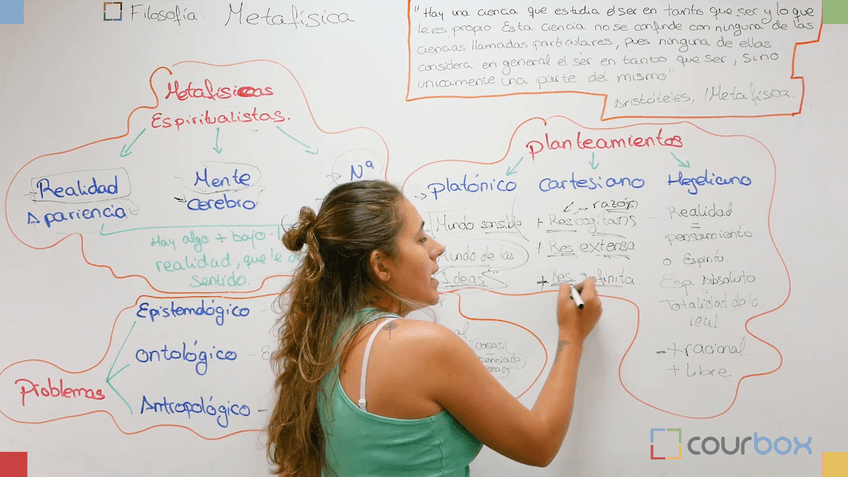 Filosofía: Metafísica
"Hay una ciencia que estudia el ser en tanto que ser y lo que
le es propio Esta ciencia no se confunde con ninguna de las
ciencias llamadas particulares, pues ninguna de ellas
considera en general el ser en tanto que ser, sino
unicamente una parte del mismo"
Aristóteles, Metafísica.
Metafísicas
Espiritualistas.
Realidad
Apariencia
Mente
Cerebro
Nª
Hay algo + bajo
realidad, que le d
sentido.
Problemas
Epistemológico
Ontológico
Antropológico
Planteamientos
Platónico
Mundo sensible
Mundo de las
Ideas
Cartesiano
razón
+ Res cogitans
+ Res extensa
+ Res finita
Hegeliano
Realidad
=
pensamiento
o Espíritu
Esp. Absoluto
Totalidad de lo
real
+ racional
+ libre.
courbox